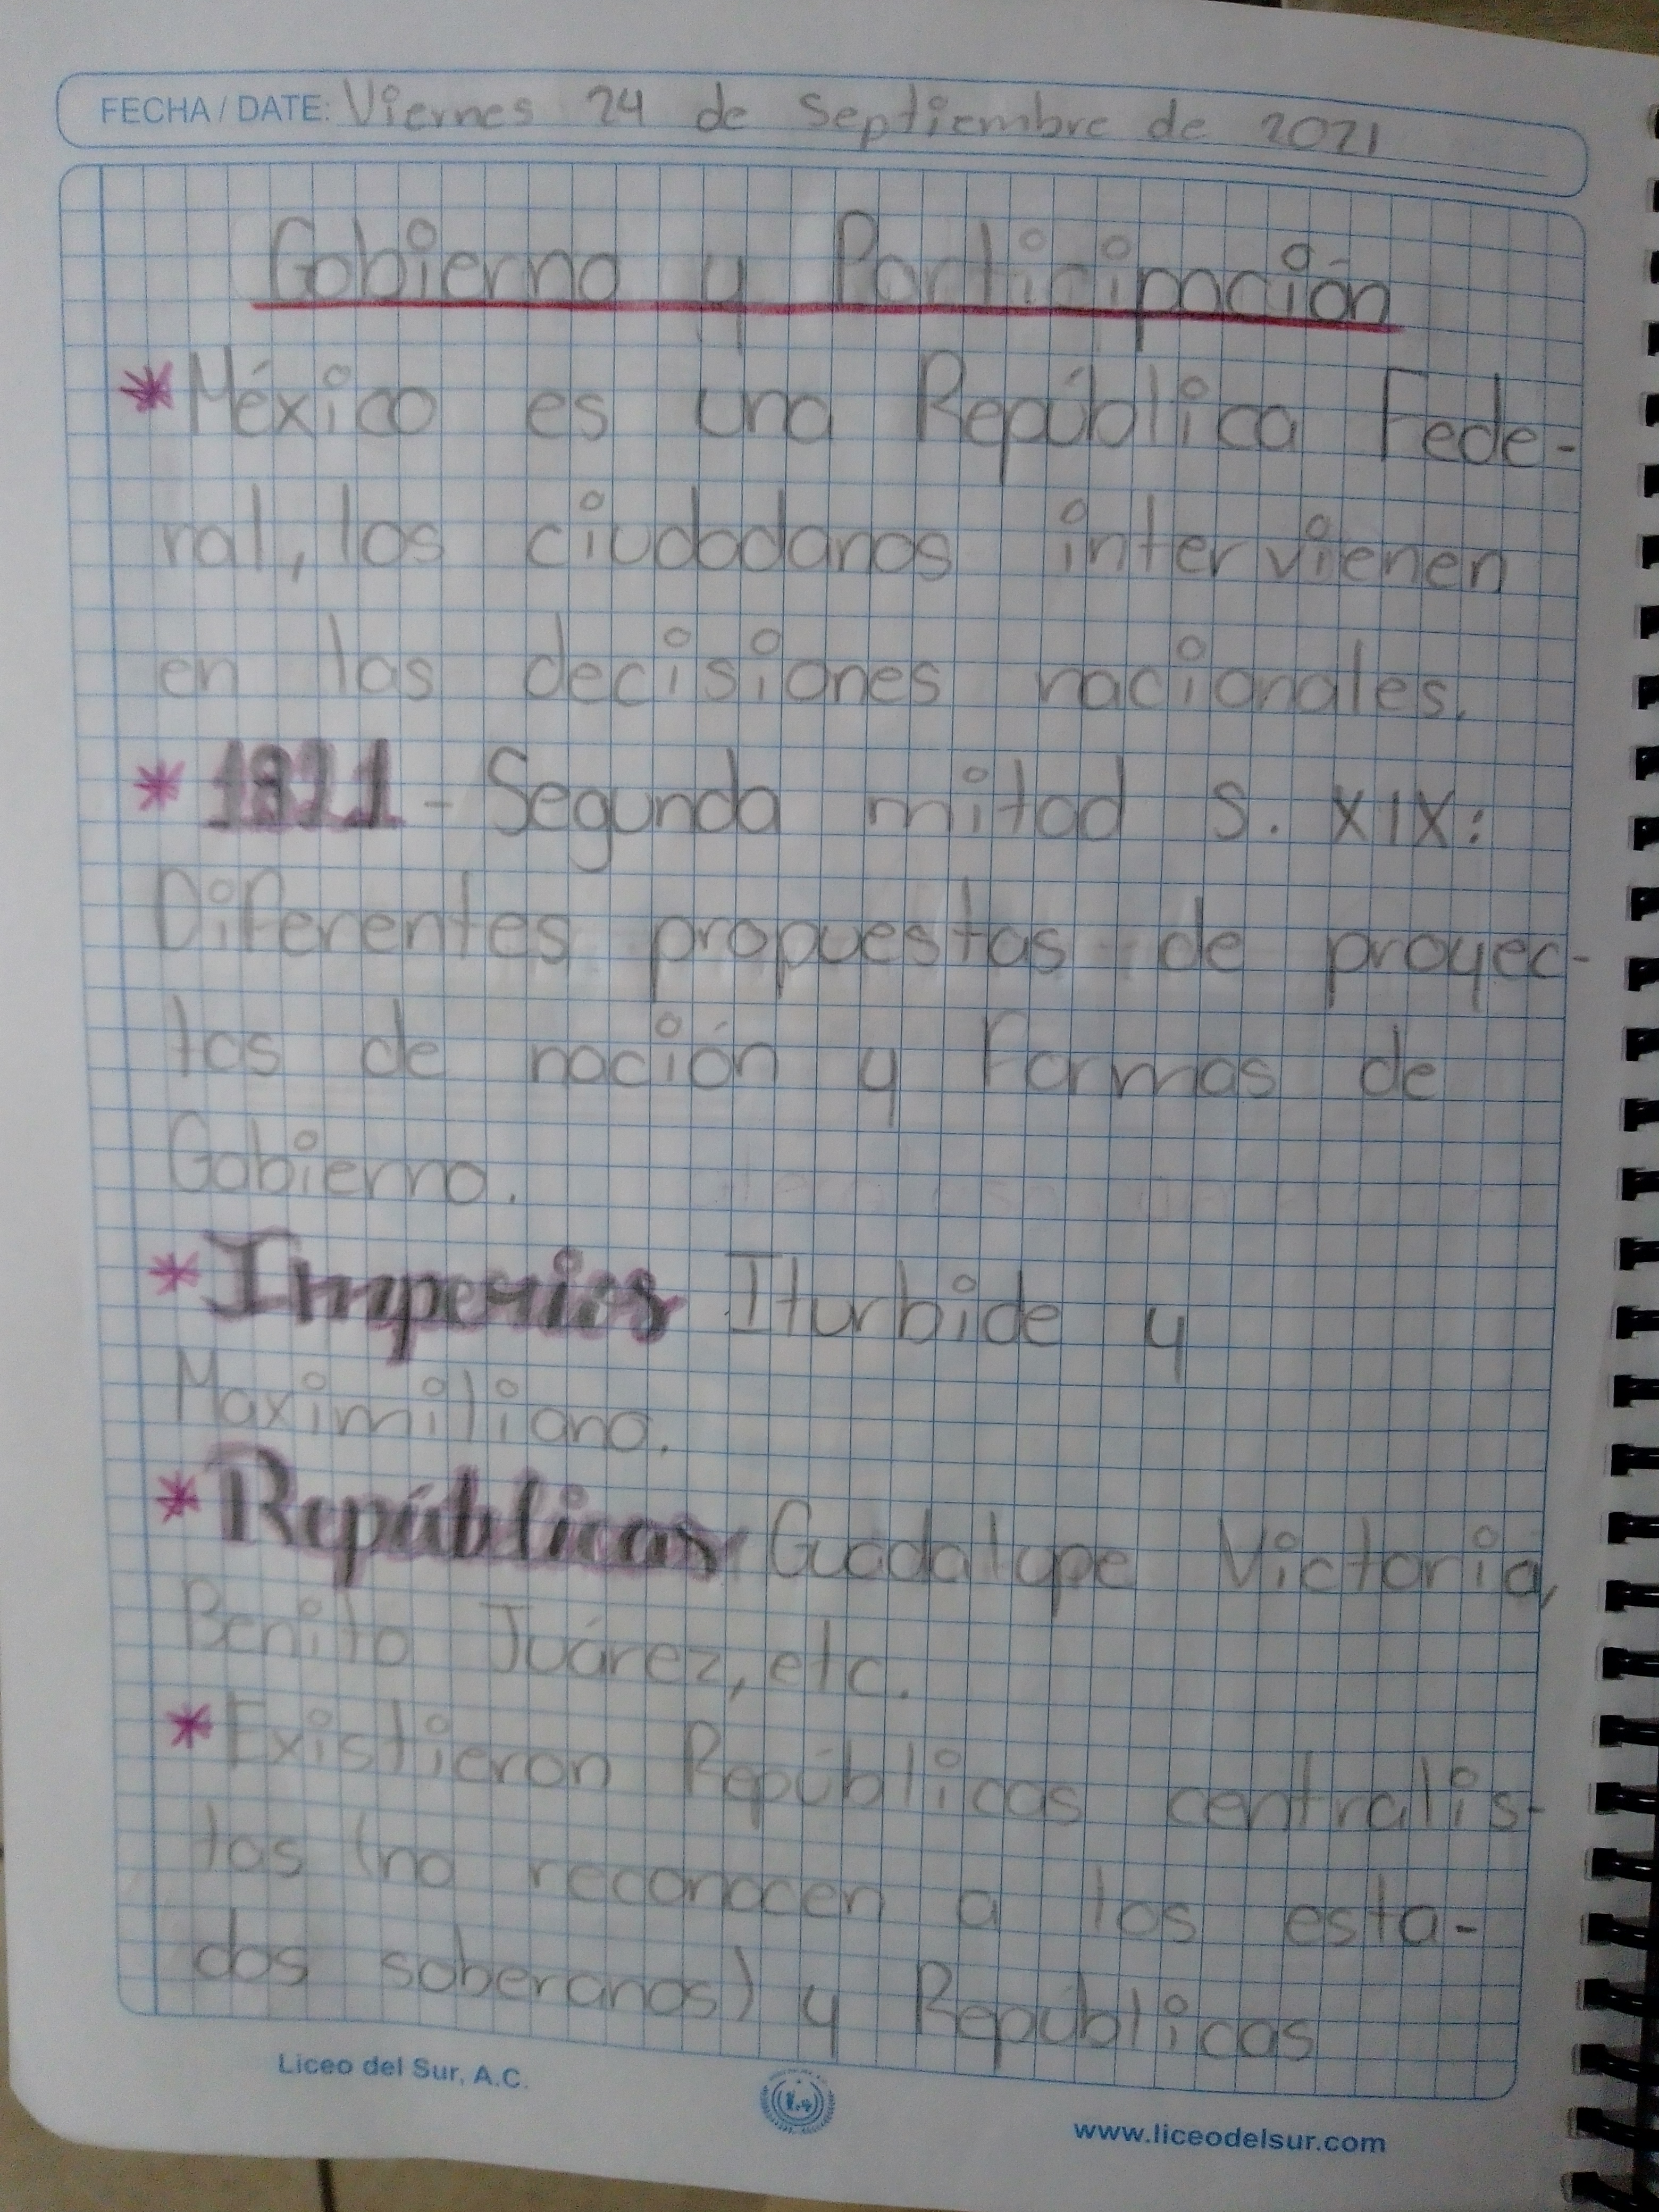 FECHA / DATE: Viernes 24 de Septiembre de 2021
Gobierno y Participación
*México es una República Fede-
ral, los ciudadanos intervienen
en las decisiones nacionales.
*1821 - Segunda mitad S. XIX:
Diferentes propuestas de proyec-
tos de nación y Formas de
Gobierno.
*Imperios Iturbide y
Maximiliano.
*Repúblicas Guadalupe Victoria,
Benito Juárez, etc.
*Existieron Repúblicas centralis-
tas (no reconocen a los esta-
dos soberanos) y Repúblicas
Liceo del Sur, A.C.
www.liceodelsur.com